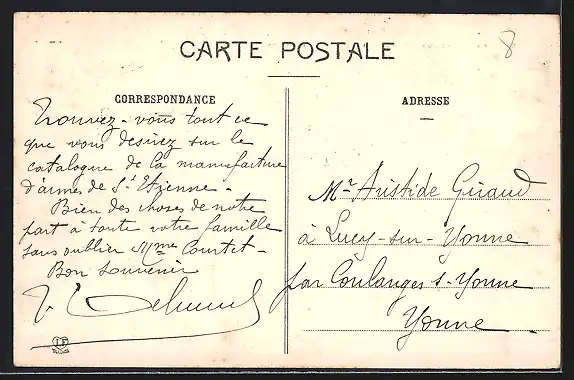 8
CARTE POSTALE
CORRESPONDANCE
Trouvez-vous tout ce
que vous desirez sur le
catalogue de la manufacture
d'armes de St Etienne -
Bien des choses de notre
part à toute votre famille
sans oublier Mme Courtet -
Bon souvenir
ADRESSE
Mr Aristide Giraud
à Lucy-sur-Yonne
par Coulanges s-Yonne
Yonne